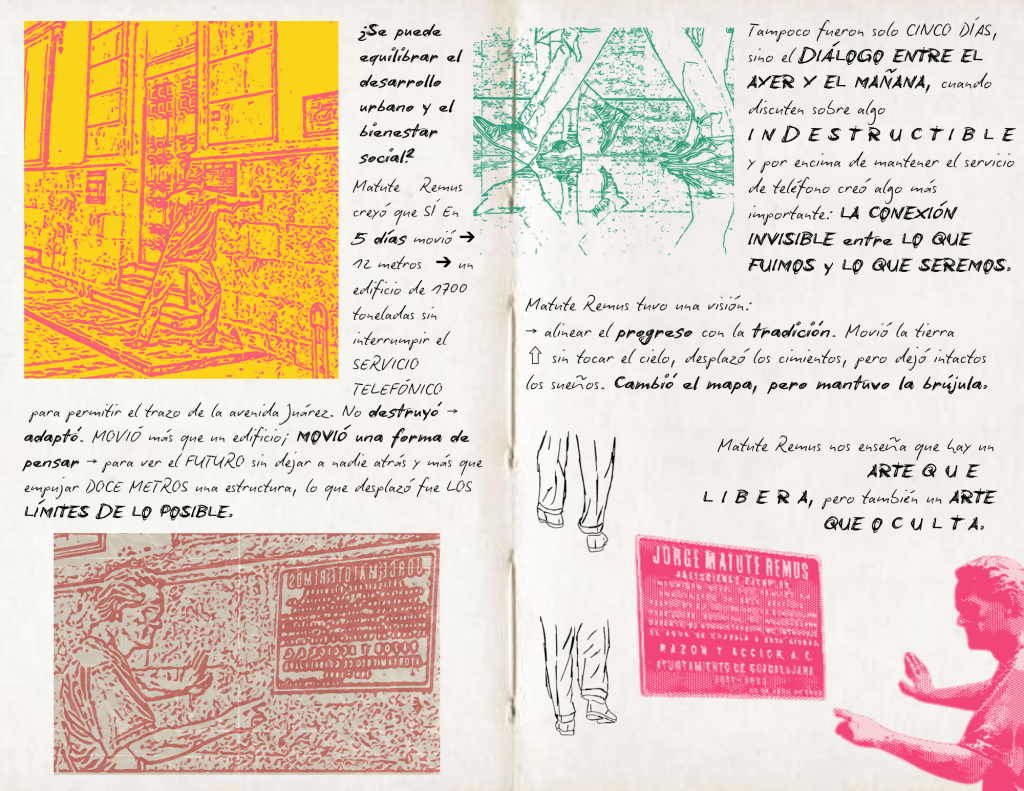 ¿Se puede
equilibrar el
desarrollo
urbano y el
bienestar
social?
Matute Remus
creyó que SÍ En
5 días movió →
12 metros → un
edificio de 1700
toneladas sin
interrumpir el
SERVICIO
TELEFÓNICO
para permitir el trazo de la avenida Juárez. No destruyó →
adaptó. MOVIÓ más que un edificio; MOVIÓ una forma de
pensar → para ver el FUTURO sin dejar a nadie atrás y más que
empujar DOCE METROS una estructura, lo que desplazó fue LOS
LÍMITES DE LO POSIBLE.
Tampoco fueron solo CINCO DÍAS,
sino el DIÁLOGO ENTRE EL
AYER Y EL MAÑANA, cuando
discuten sobre algo
INDESTRUCTIBLE
y por encima de mantener el servicio
de teléfono creó algo más
importante: LA CONEXIÓN
INVISIBLE entre LO QUE
FUIMOS y LO QUE SEREMOS.
Matute Remus tuvo una visión:
→ alinear el progreso con la tradición. Movió la tierra
⇧ sin tocar el cielo, desplazó los cimientos, pero dejó intactos
los sueños. Cambió el mapa, pero mantuvo la brújula.
Matute Remus nos enseña que hay un
ARTE QUE
LIBERA, pero también un ARTE
QUE OCULTA.
JORGE MATUTE REMUS
JALISCIENSE EJEMPLAR
RAZON Y ACCION A.C.
AYUNTAMIENTO DE GUADALAJARA